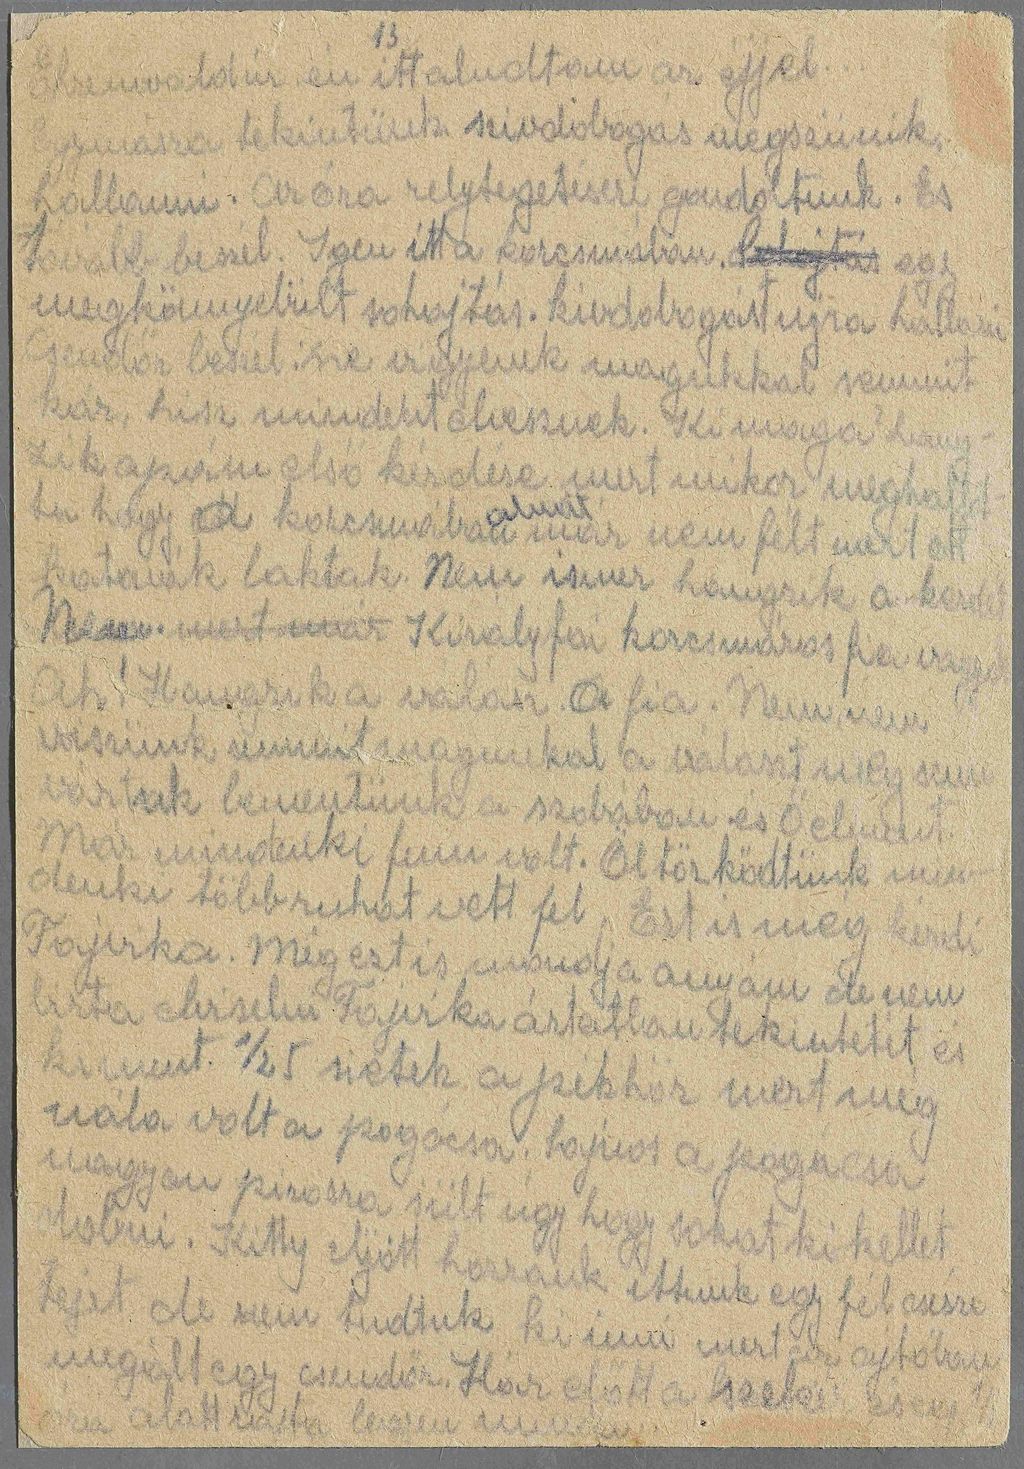 13
Ehrenwald úr én itt aludtam az éjjel...
Egymásra tekintünk szivdobogás megszünik,
hallanni. Az óra relytegetéseri gondoltunk. És
tovább beszél. Igen itt a korcsmában. sohajtás egy
megkönnyebült sohajtás. Szivdobogást ujra hallani
Csendőr beszél: ne vigyenek magukkal semmit
kár, hisz mindent elvesznek. Ki maga? hang-
zik apám első kérdése mert mikor meghallot-
ta hogy a korcsmában aludt már nem félt mert ott
katonák laktak. Nem ismer hangzik a kérdés
Nem mert már Királyfai korcsmáros fia vagyok
Ah! Hangzik a válasz. A fia. Nem, nem
viszünk semmit magunkal a választ meg sem
vártuk bementünk a szobában és Ő elment.
Már mindenki fenn volt. Öltözködtünk min-
denki több ruhát vett fel. Ezt is még kérdi
Fájirka. Még ezt is mondja anyám de nem
birta elviselni Fájirka ártatlan tekintetét és
kiment. 1/2 5 sietek a pékhöz mert még
nála volt a pogácsa. Sajnos a pogácsa
nagyon pirosra sült úgy hogy sokat ki kellet
dobni. Kitty eljött hozzánk ittunk egy fél csésze
tejet de nem tudtuk ki inni mert az ajtóban
megált egy csendőr. Ház előtt a szekér és egy 1/2
óra alatt rajta legyen minden.